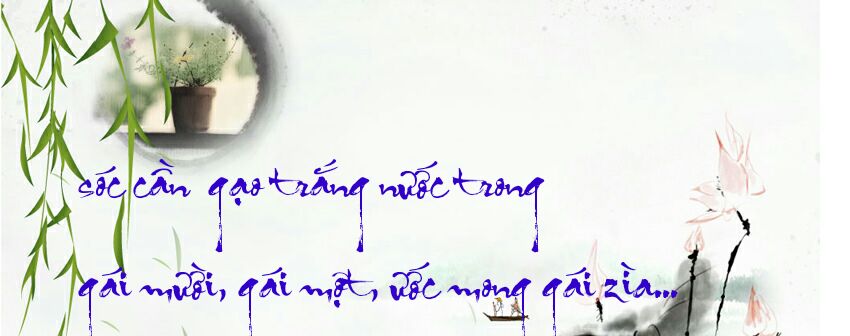 sóc cần gạo trắng nước trong
gái mười, gái một, ước mong gái zìa...